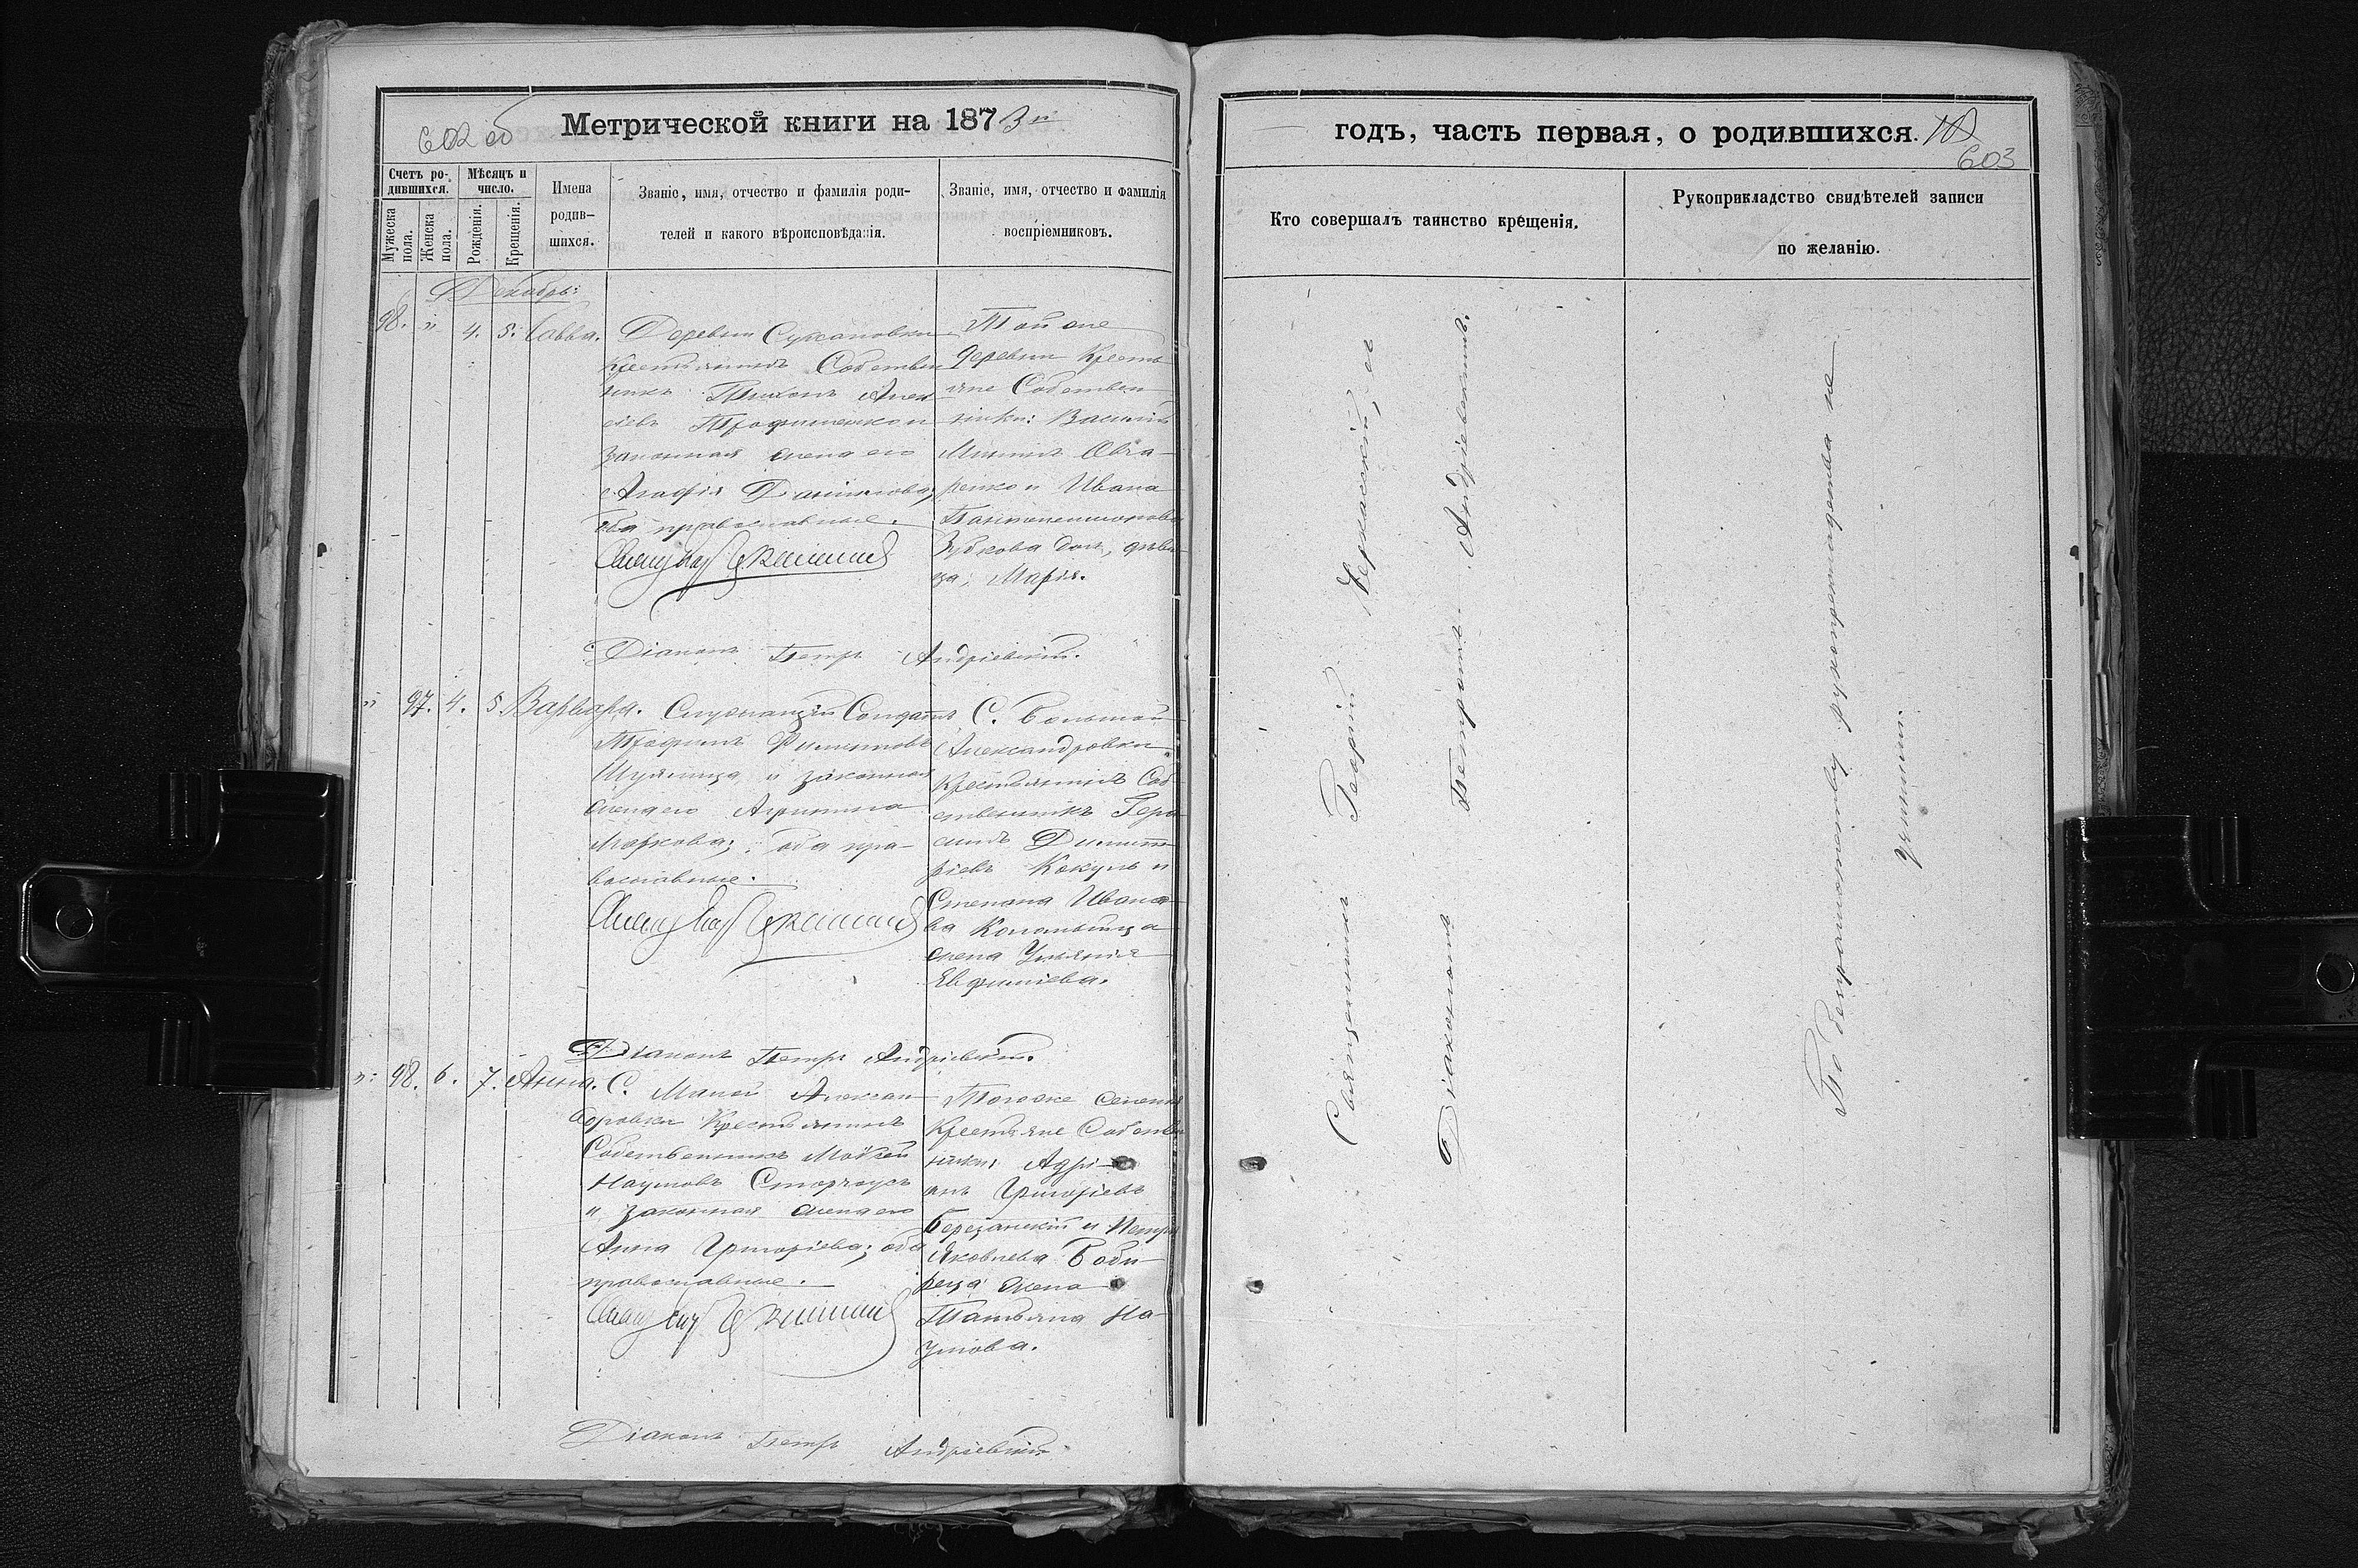 602 об
Метрической книги на 1873й
Счетъ ро-
дившихся.
Мѣсяцъ и
число.
Мужеска
пола.
Женска
пола.
Рожденія.
Крещенія.
Имена
родив-
шихся.
Званіе, имя, отчество и фамилія роди-
телей и какого вѣроисповѣданія.
Званіе, имя, отчество и фамилія
воспріемниковъ.
Декабрь:
98. " 4. 5. Савва.
Деревни
Крестьянинъ Собствен
никъ Тихонъ Алек
сіевъ Трофименко и
законная жена его
Агафія Даніилова,
оба православные.
Той же
деревни Кресть
яне Собствен
ники: Василій
Мининъ Овча-
ренко и Ивана
Пантелеимонова
Зубкова дочь, дѣви
ца, Марія.
Діаконъ Петръ Андріевскій.
" 97. 4. 5. Варвара.
Служащій Солдатъ
Трофимъ Филиповъ
и законная
жена его Агрипина
Маркова; оба пра-
вославные.
С. Большой
Александровки
Крестьянинъ Соб
ственникъ Гера
симъ Димит
ріевъ Кокуль и
Степана Ивано
ва Коломыйца
жена Ульянія
Евфиміева.
Діаконъ Петръ Андріевскій.
": 98. 6. 7. Анна.
С. Малой Алексан
дровки Крестьянинъ
Собственникъ Моѵсей
Наумовъ Сторчоусъ
и законная жена его
Анна Григоріева; оба
православные.
Того же селенія
Крестьяне Собствен
ники: Адрі-
анъ Григоріевъ
Березанскій и Петра
Яковлева Боби
реца жена
Татьяна На-
умова.
Діаконъ Петръ Андріевскій
годъ, часть первая, о родившихся.
603
Кто совершалъ таинство крещенія.
Рукоприкладство свидѣтелей записи
по желанію.
Священникъ Георгій Черкасскій, съ
Діакономъ Петромъ Андріевскимъ.
По безграмотству рукоприкладства не
учинили.